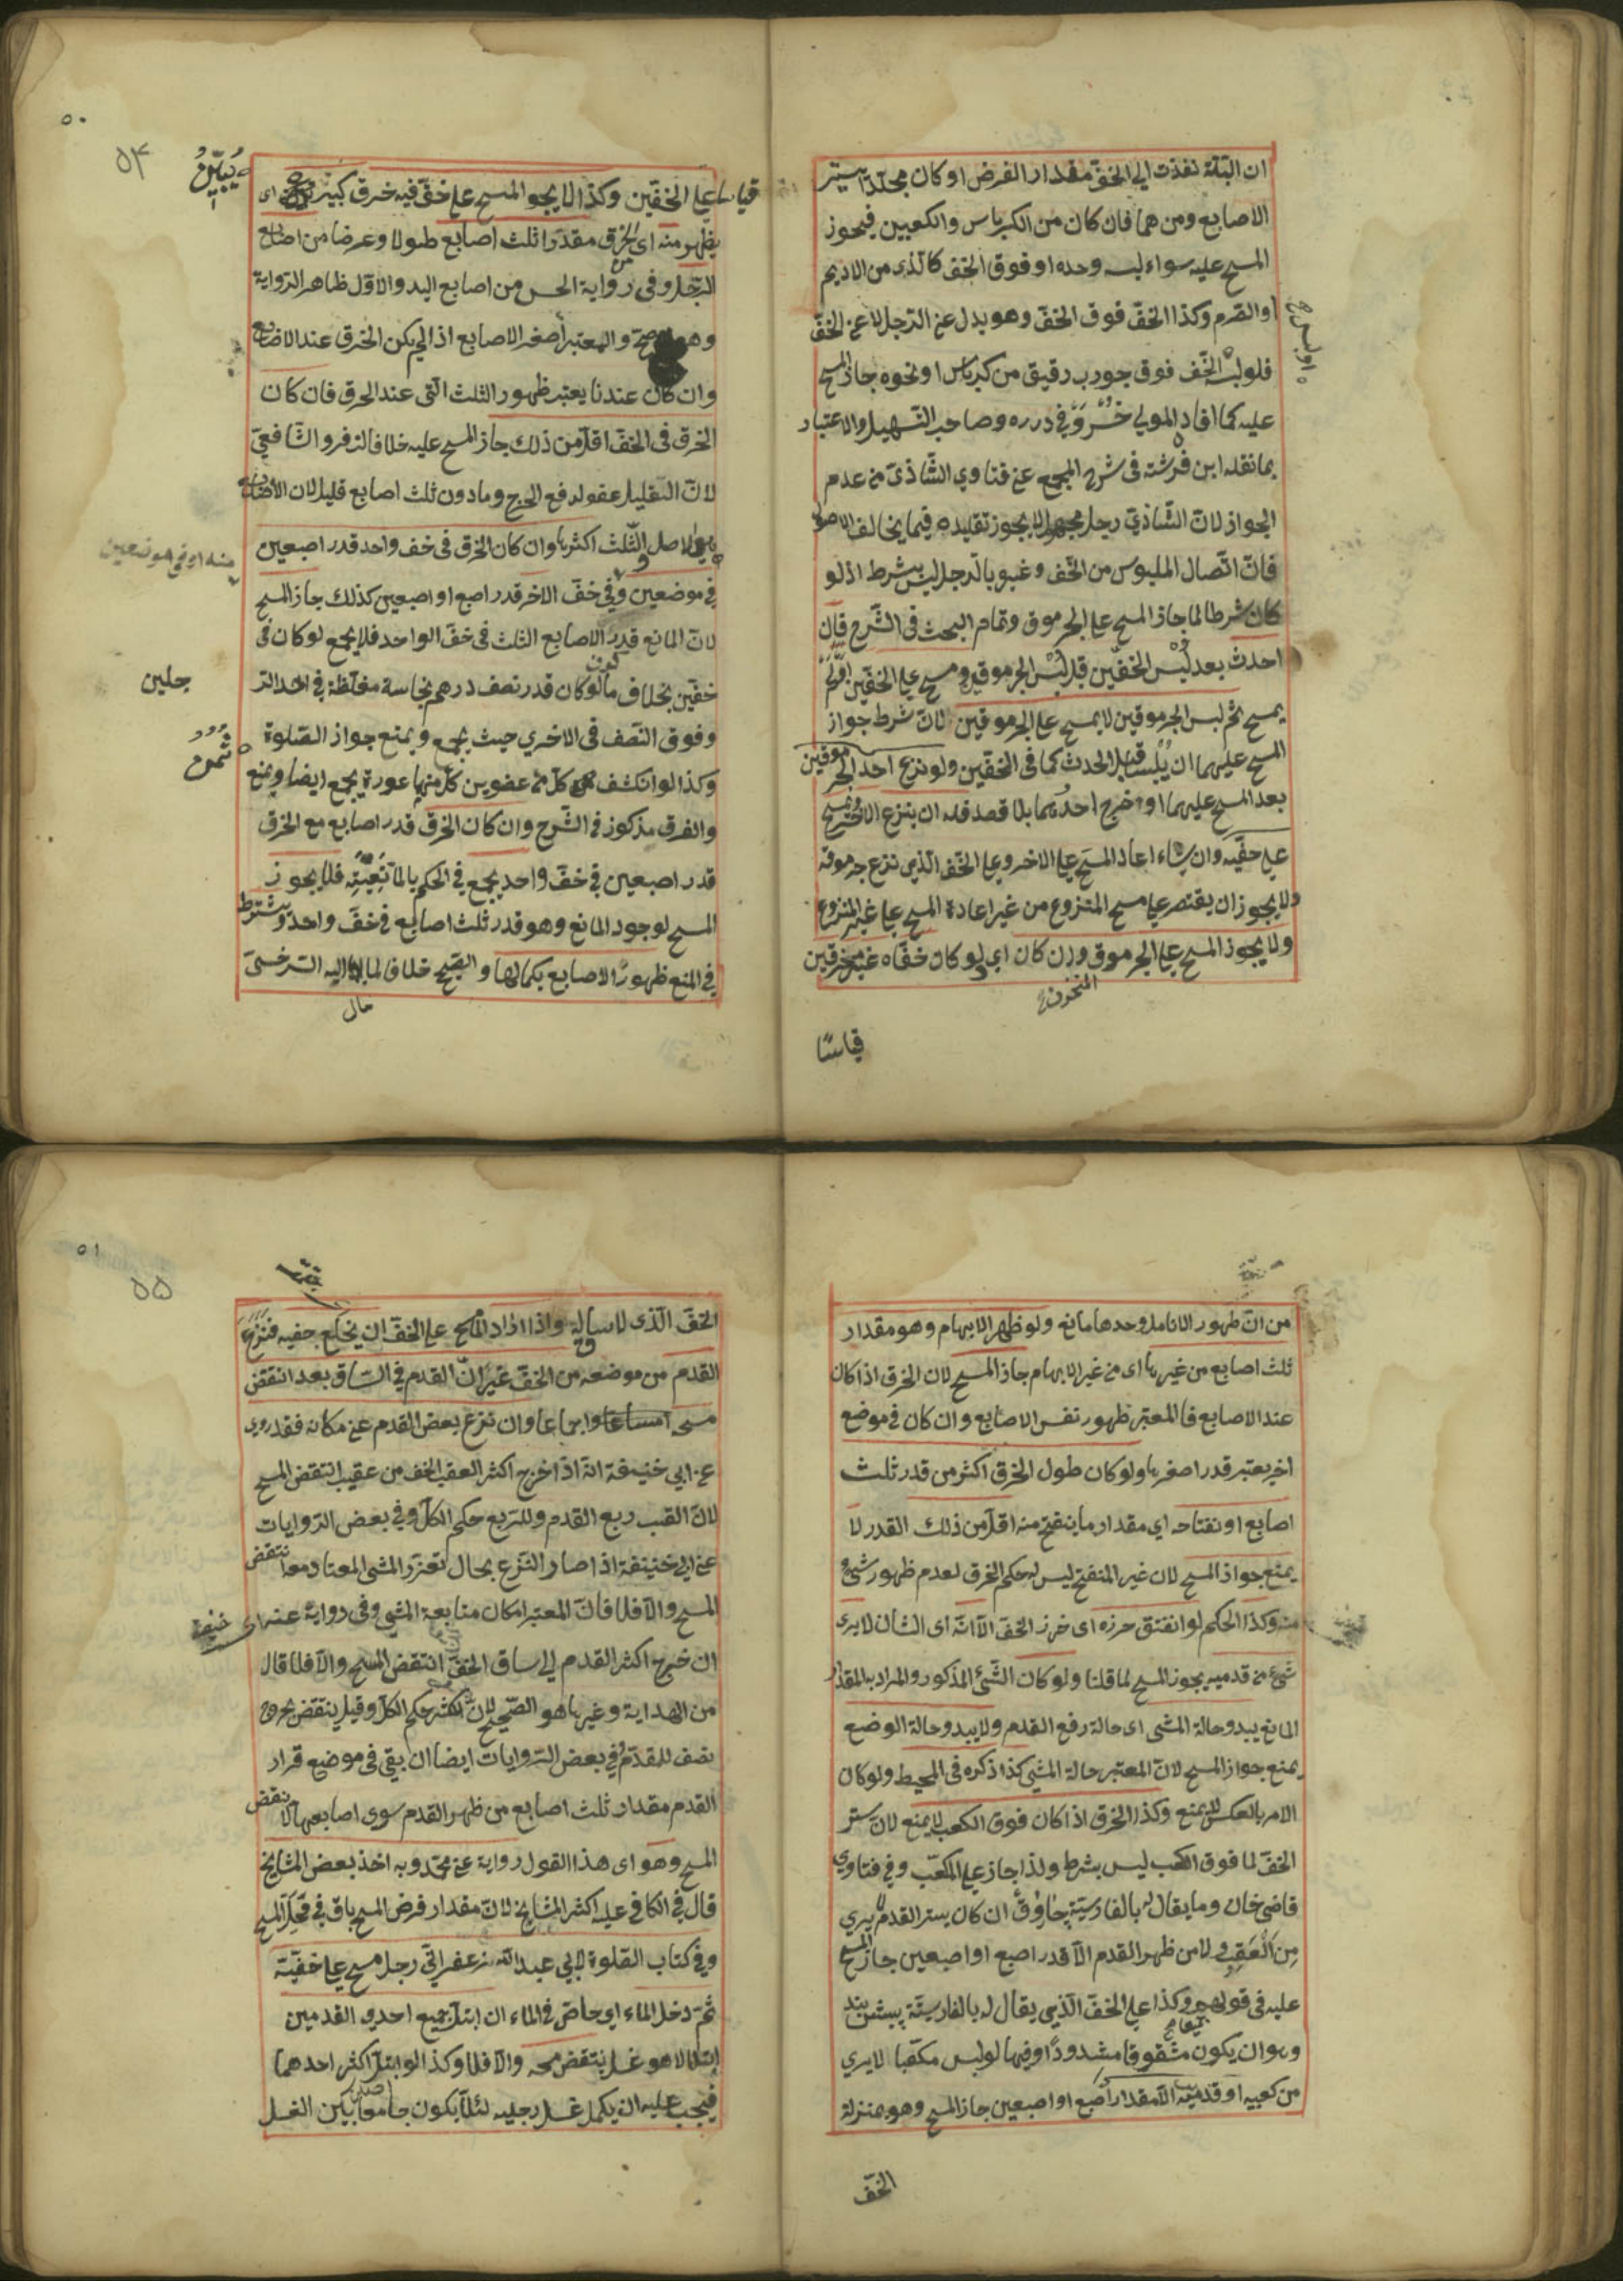 ان البلة نفذت الي الخف مقدار الفرض او كان مجلدا يستر
الاصابع ومن هما فان كان من الكرباس والكعبين فيجوز
المسح عليه سواء لبسه وحده او فوق الخف كالذى من الاديم
او الصرم وكذا الخف فوق الخف وهو بدل عن الرجل لا عن الخف
فلو لبس الخف فوق جورب رقيق من كرباس او نحوه جاز المسح
عليه كما افاد المولي خسرو في درره وصاحب التسهيل والاعتبار
بما نقله ابن فرشته فى شرح المجمع عن فتاوي الشاذى من عدم
الجواز لان الشاذي رجل مجهول لا يجوز تقليده فيما يخالف الاصول
فان اتصال الملبوس من الخف وغيره بالرجل ليس بشرط اذ لو
كان شرطا لما جاز المسح على الجرموق وتمام البحث فى الشرح فان
احدث بعد لبس الخفين قبل لبس الجرموقين ومسح على الخفين او لم
يمسح ثم لبس الجرموقين لا يمسح على الجرموقين لان شرط جواز
المسح عليهما ان يلبسا قبل الحدث كما فى الخفين ولو نزع احد الجرموقين
بعد المسح عليهما او خرج احدهما بلا قصد فله ان ينزع الاخر ويمسح
على خفيه وان شاء اعاد المسح على الاخر وعلى الخف الذي نزع جرموقه
ولا يجوز ان يقتصر على مسح المنزوع من غير اعادة المسح على غير المنزوع
ولا يجوز المسح على الجرموق وان كان اي لو كان خفاه غير مخرقين
المنخرق
قياسًا
٥٠
٥٤
يُبَيِّنُ
قياسا على الخفين وكذا لا يجو المسح على خف فيه خرق كبير اى
يظهر منه اى الخرق مقدرا ثلث اصابع طولا وعرضا من اصابع
الرجل وفى رواية الحسن من اصابع اليد والاول ظاهر الرواية
وهو والمعتبر اصغر الاصابع اذا لم يكن الخرق عند الاصابع
وان كان عندنا يعتبر ظهور الثلث التى عند الخرق فان كان
الخرق فى الخف اقل من ذلك جاز المسح عليه خلافا لزفر والشافعي
لان القليل عفو لدفع الحرج وما دون ثلث اصابع قليل لان الاصابع
هي الاصل والثلث اكثرها وان كان الخرق فى خف واحد قدر اصبعين
منه او في موضعين
في موضعين وفي خف الاخر قدر اصبع او اصبعين كذلك جاز المسح
لان المانع قدر الاصابع الثلث فى خف الواحد فلا يجمع لو كان فى
خفين بخلاف ما لو كان قدر نصف درهم نجاسة مغلظة في احد الر
جلين
وفوق النصف فى الاخري حيث يجمع ويمنع جواز الصلوة
وكذا لو انكشف كل من عضوين كل منها عورة يجمع ايضا ويمنع
والفرق مذكور في الشرح وان كان الخرق قدر اصابع مع الخرق
قدر اصبعين في خف واحد يجمع في الحكم بالمانعية فلا يجوز
المسح لوجود المانع وهو قدر ثلث اصابع في خف واحد ويشترط
في المنع ظهور الاصابع بكمالها والصحيح خلافا لما اليه السرخسى
مال
من ان ظهور الانامل وحدها مانع ولو ظهر الابهام وهو مقدار
ثلث اصابع من غيرها اى من غير الابهام جاز المسح لان الخرق اذا كان
عند الاصابع فالمعتبر ظهور نفس الاصابع وان كان في موضع
اخر يعتبر قدر اصغرها ولو كان طول الخرق اكثر من قدر ثلث
اصابع او نفتاحه اي مقدار ما ينفتح منه اقل من ذلك القدر لا
يمنع جواز المسح لان غير المنفتح ليس له حكم الخرق لعدم ظهور شئ
منه وكذا الحكم لو انفتق خرزه اى خرز الخف الا انه اى الشان لا يرى
شئ من قدميه يجوز المسح لما قلنا ولو كان الشئ المذكور والمراد به المقدار
المانع يبدو حالة المشى اى حالة رفع القدم ولا يبدو حالة الوضع
يمنع جواز المسح لان المعتبر حالة المشي كذا ذكره فى المحيط ولو كان
الامر بالعكس لا يمنع وكذا الخرق اذا كان فوق الكعب لا يمنع لان ستر
الخف لما فوق الكعب ليس بشرط ولذا جاز على المكعب وفي فتاوي
قاضى خان وما يقال له بالفارسية جاروق ان كان يستر القدم لا يري
من العقب ولا من ظهر القدم الا قدر اصبع او اصبعين جاز المسح
عليه فى قولهم وكذا على الخف الذي يقال له بالفارسية پيش بند
وهو ان يكون مشقوقا مشدودًا وفيها لو لبس مكعبا لا يري
من كعبيه او قدميه الا مقدار اصبع او اصبعين جاز المسح وهو بمنزلة
الخف
٥١
٥٥
الخف الذى لا ساق له واذا اراد الماسح على الخف ان يخلع خفيه فنزع
القدم من موضعه من الخف غير ان القدم في الساق بعد انتقض
مسحه اجماعا وان نزع بعض القدم عن مكانه فقد روي
عن ابي حنيفة انه اذا خرج اكثر العقب الخف من عقيب انتقض المسح
لان القب ربع القدم وللربع حكم الكل وفي بعض الروايات
عن ابي حنيفة اذا صار النزع بحال تعذر المشى المعتاد معه انتقض
المسح والا فلا فان المعتبر امكان متابعة المشي وفى رواية عنه اى
حنيفة
ان خرج اكثر القدم الي ساق الخف انتقض المسح والا فلا قال
من الهداية وغيرها هو الصحيح لان للاكثر حكم الكل وقيل ينتقض بخروج
نصف للقدم وفي بعض الروايات ايضا ان بقي فى موضع قرار
القدم مقدار ثلث اصابع من ظهر القدم سوى اصابعها لا ينتقض
المسح وهو اى هذا القول رواية عن محمد وبه اخذ بعض المشايخ
قال في الكافي عليه اكثر المشايخ لان مقدار فرض المسح باق في محل المسح
وفي كتاب الصلوة لابي عبد الله زعفراني رجل مسح على خفيه
ثم دخل الماء اي خاض في الماء ان ابتل جميع احدي القدمين
ابتلالا هو غسل ينتقض مسحه والا فلا وكذا لو ابتل اكثر احدهما
فيجب عليه ان يكمل غسل رجليه لئلا يكون جامعا بين الغسل